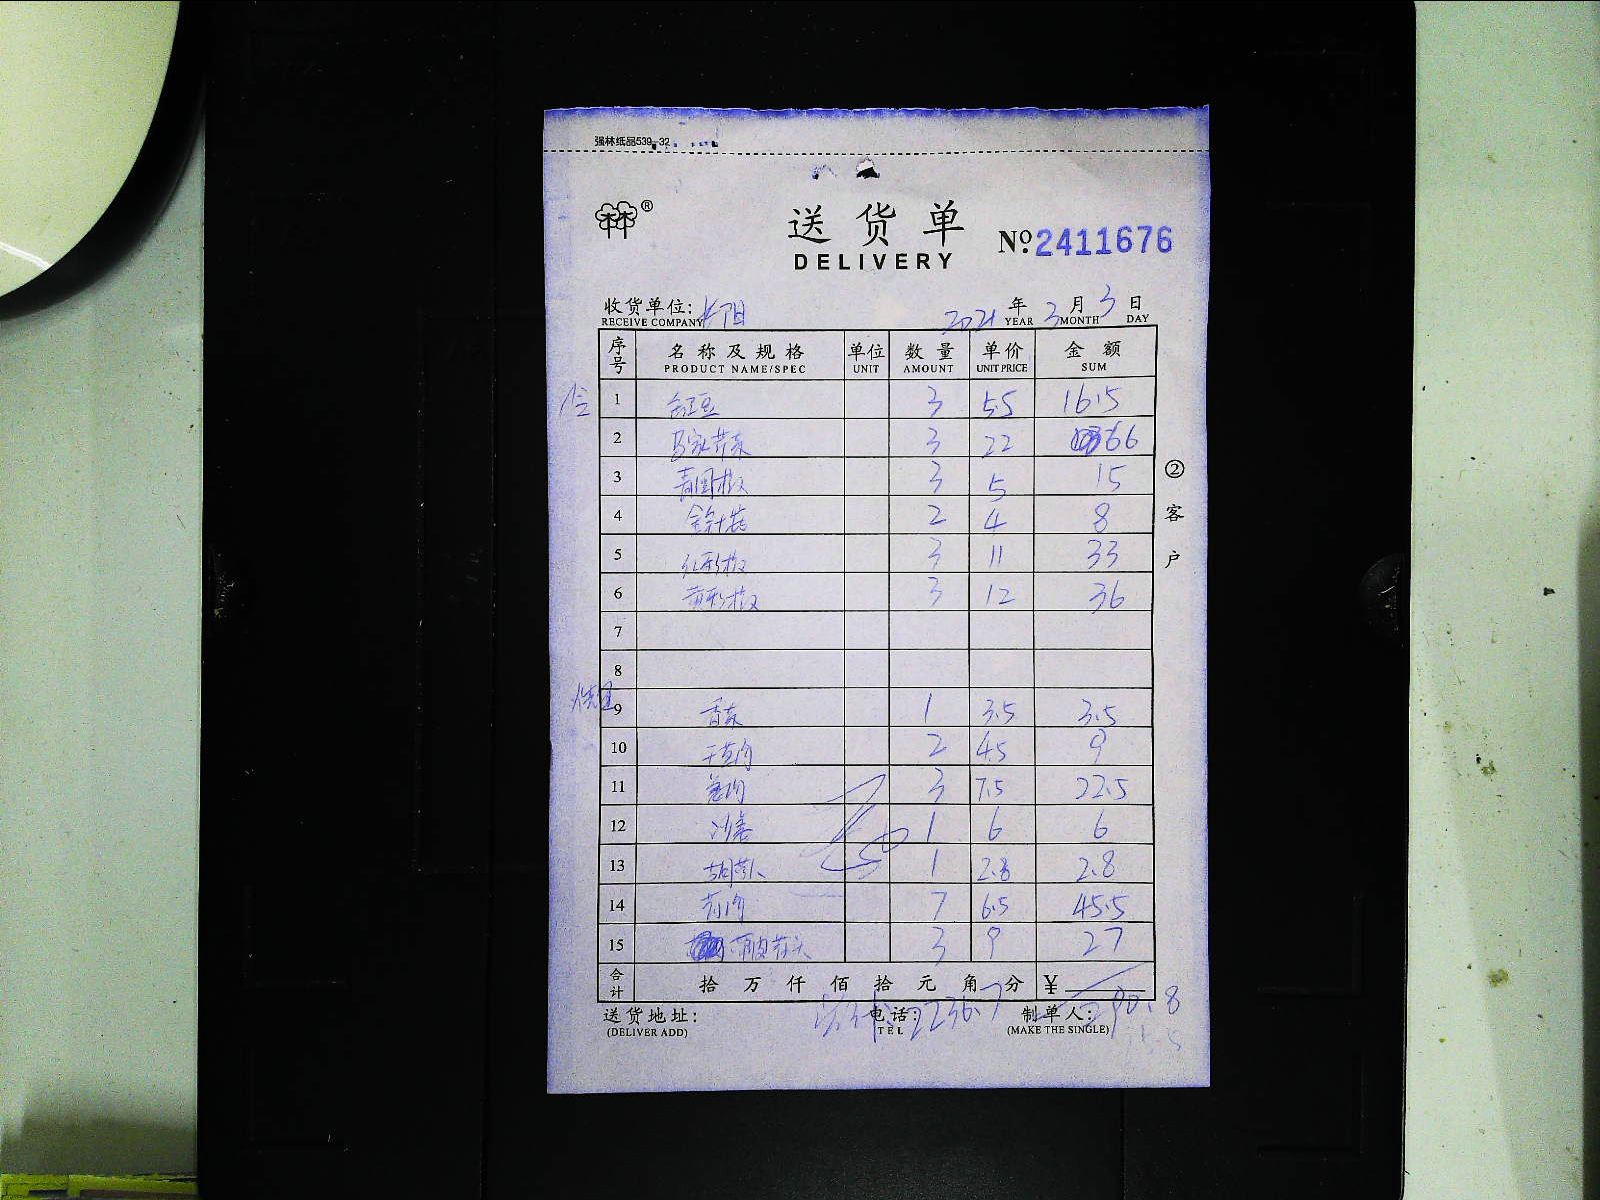 强林纸品539-32
送货单
DELIVERY
№ 2411676
收货单位: 2021 年 3 月 3 日
RECEIVE COMPANY YEAR MONTH DAY
序号 名称及规格 单位 数量 单价 金额
PRODUCT NAME/SPEC UNIT AMOUNT UNIT PRICE SUM
1 红豆 3 5.5 16.5
2 3 22 66
3 青圆椒 3 5 15
4 金针菇 2 4 8
5 红彩椒 3 11 33
6 黄彩椒 3 12 36
7
8
9 香菜 1 3.5 3.5
10 2 4.5 9
11 3 7.5 22.5
12 沙姜 1 6 6
13 1 2.8 2.8
14 7 6.5 45.5
15 3 9 27
合计 拾 万 仟 佰 拾 元 角 分 ¥
290.8
2236.7
送货地址: 电话: 制单人:
(DELIVER ADD) TEL (MAKE THE SINGLE)
② 客户